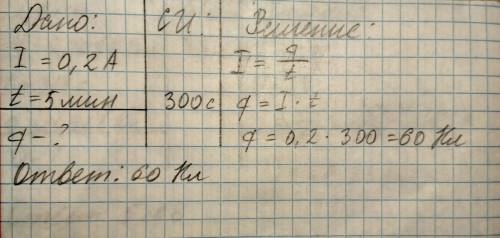 Дано: СИ: Решение:
I = 0,2 А I = q/t
t = 5 мин 300 с q = I · t
q - ? q = 0,2 · 300 = 60 Кл
Ответ: 60 Кл